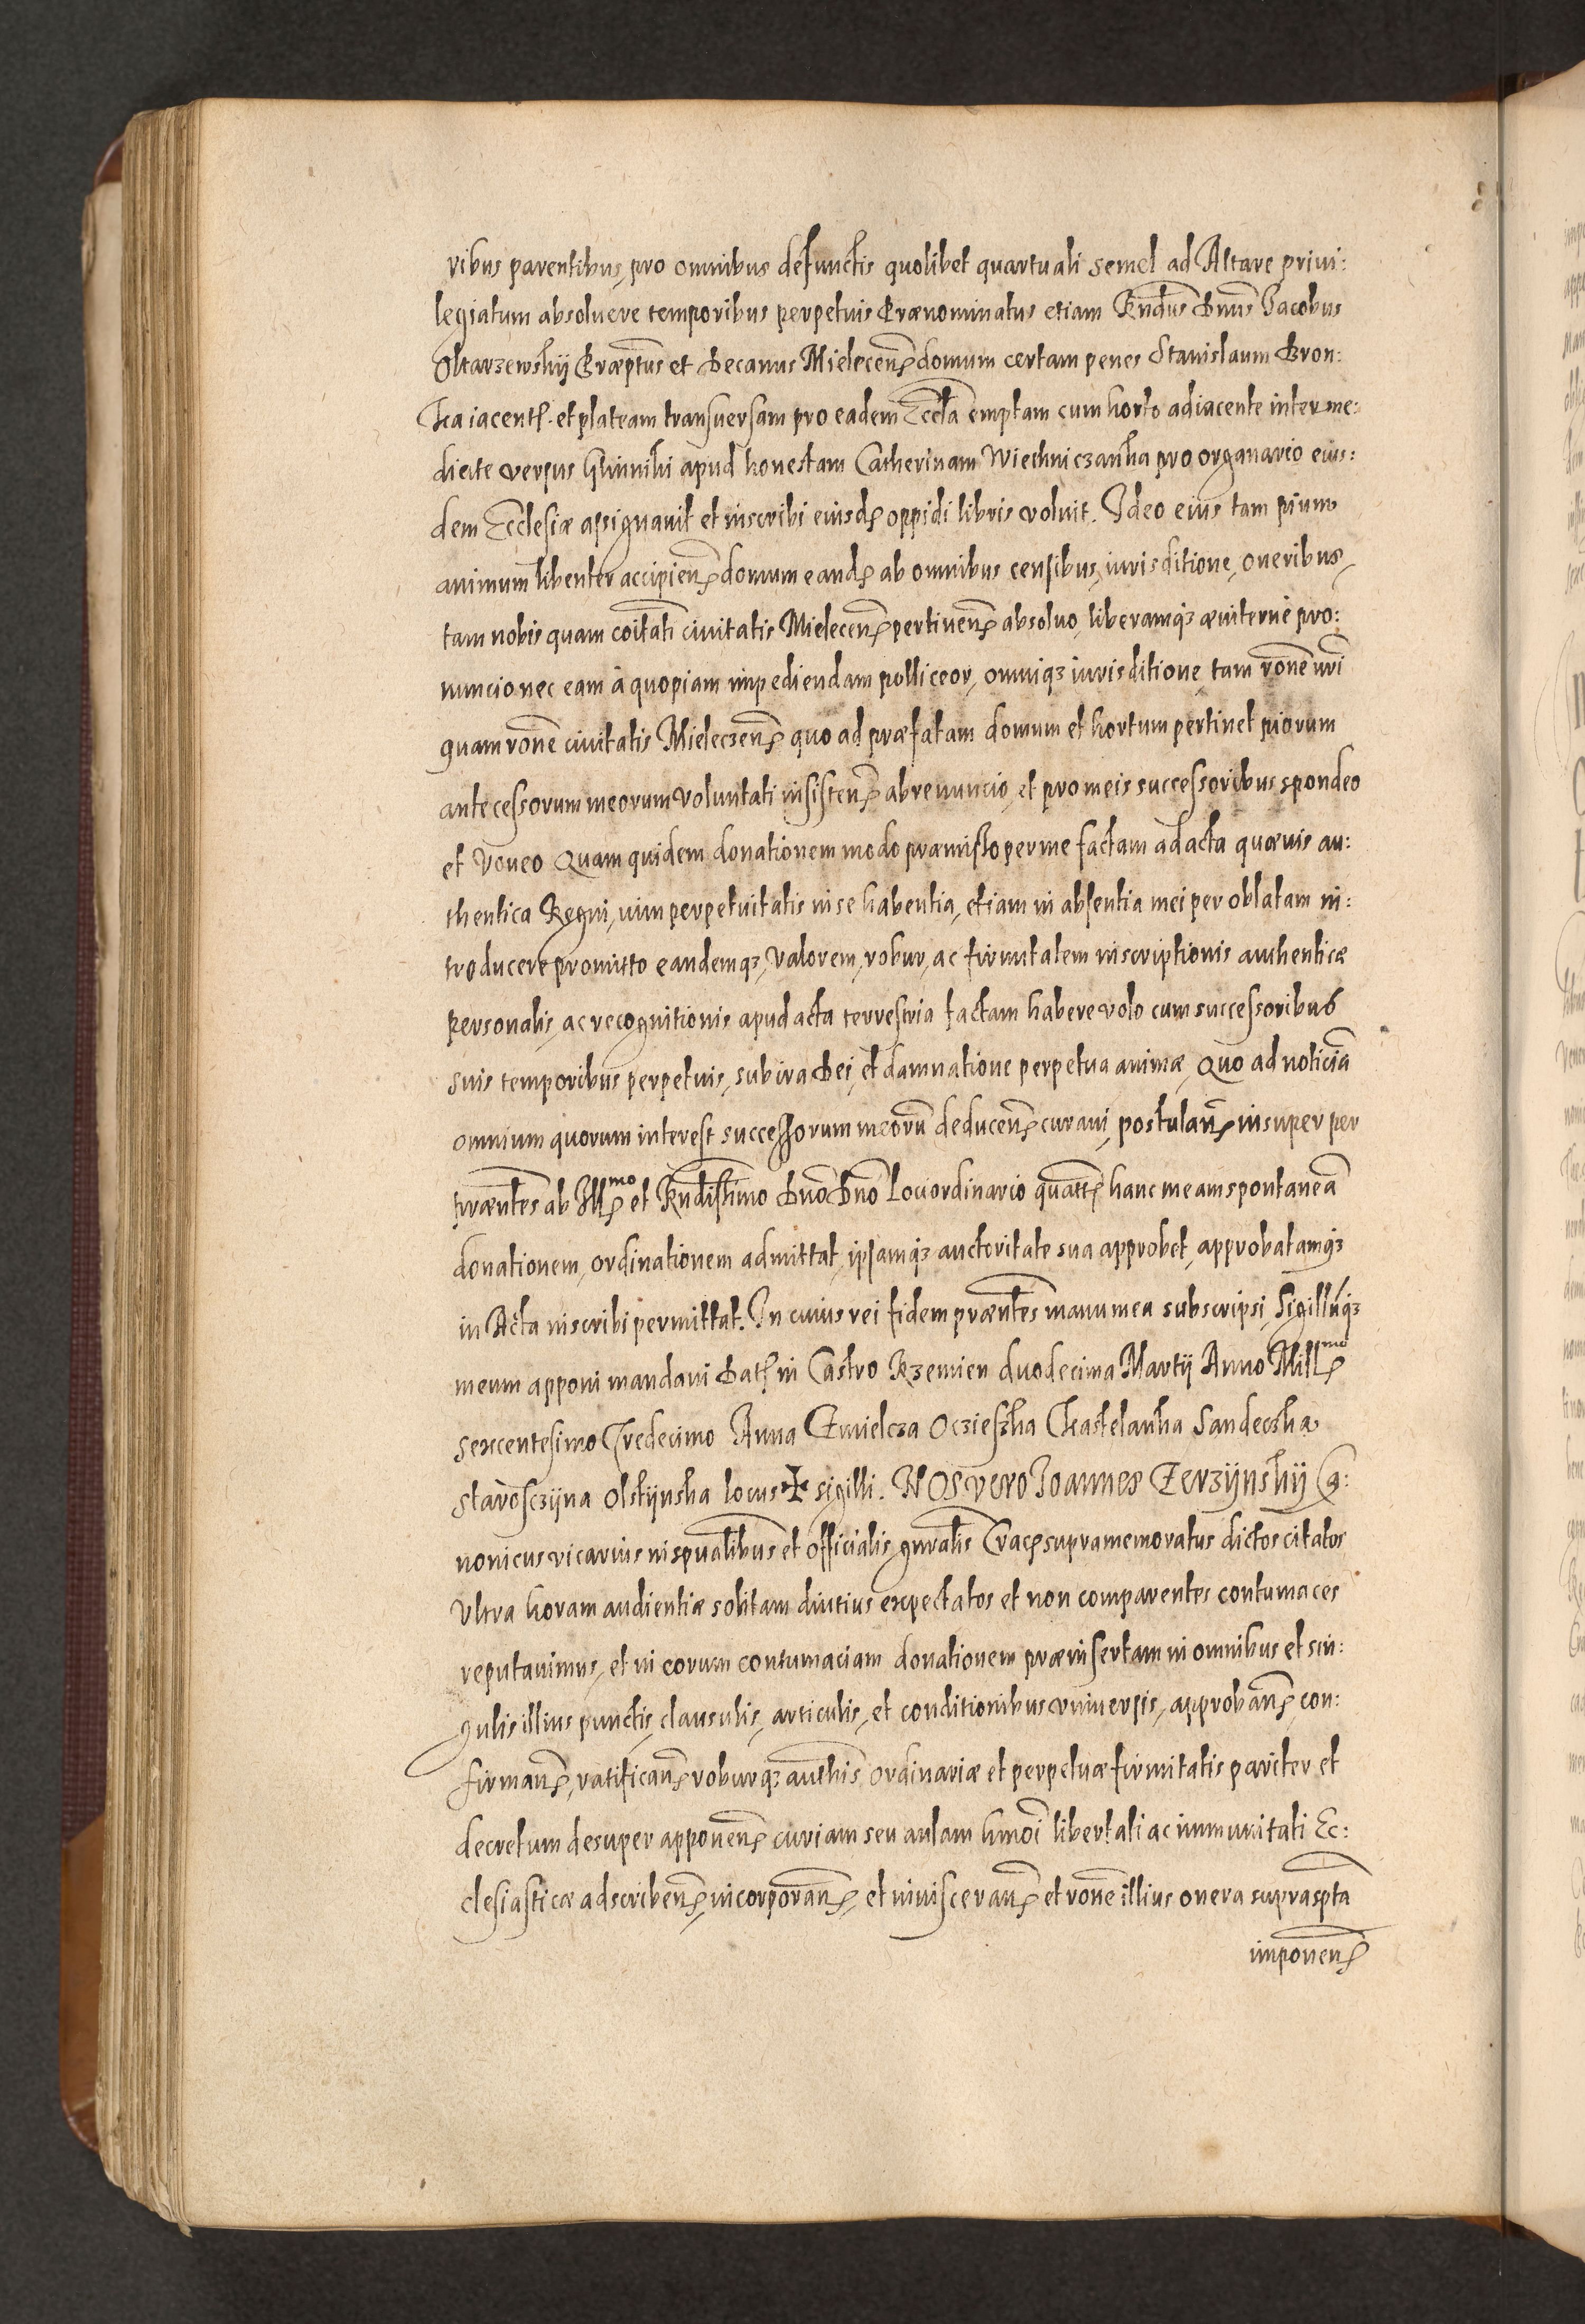 ribus parentibus, pro omnibus defunctis quolibet quartuali semel ad Altare priui:
legiatum absoluere temporibus perpetuis Prænominatus etiam Rñdus Dñus Jacobus
Oltarzewskij Præptus et Decanus Mielecen̄ domum certam penes Stanislaum Bron:
ka iacent. et plateam transuersam pro eadem Eccla emptam cum horto adiacente inter me:
diete versus Glinniki apud honestam Catherinam Wiechniczanka pro organario eius:
dem Ecclesiæ assignauit et inscribi eiusd. oppidi libris voluit. Ideo eius tam pium
animum libenter accipien̄ domum eand. ab omnibus censibus, iurisditione, oneribus,
tam nobis quam coitati ciuitatis Mielecen̄ pertinen̄ absoluo, liberamqz æuiterne pro:
nuncio nec eam à quopiam impediendam polliceor, omniqz iurisditione, tam rone nri
quam rone ciuitatis Mieleczen̄ quo ad præfatam domum et hortum pertinet piorum
antecessorum meorum voluntati insisten̄ abrenuncio, et pro meis successoribus spondeo
et Voueo Quam quidem donationem modo præmisso per me factam ad acta quæuis au:
thentica Regni, uim perpetuitatis in se habentia, etiam in absentia mei per oblatam in:
troducere promitto eandemqz, valorem, robur, ac firmitatem inscriptionis authenticæ
personalis, ac recognitionis apud acta terrestria factam habere volo cum successoribus
suis temporibus perpetuis, sub ira Dei, et damnatione perpetua animæ, Quo ad noticiā
omnium quorum interest successorum meorū deducen̄ curaui, postulan̄ insuper per
præntes ab Illmo et Rndissimo Dno Dno Loci ordinario quatt. hanc meam spontaneā
donationem, ordinationem admittat, ipsamqz auctoritate sua approbet, approbatamqz
in Acta inscribi permittat. In cuius rei fidem præntes manu mea subscripsi, Sigillūqz
meum apponi mandaui Dat. in Castro Rzemien duodecima Martij Anno Millmo
sexcentesimo Tredecimo Anna Zmielcza Oczieszka Kastelanka Sandeczka
starosczyna Olstijnska locus ✠ sigilli. NOS vero Joannes Zerzijnskij Ca:
nonicus vicarius in spualibus et Officialis gnralis Crac. supramemoratus dictos citatos
Vltra horam audientiæ solitam diutius expectatos et non comparentes contumaces
reputauimus, et in eorum contumaciam donationem præinsertam in omnibus et sin:
gulis illius punctis, clausulis, articulis, et conditionibus vniuersis, approban̄, con:
firman̄, ratifican̄ roburqz authis ordinariæ et perpetuæ firmitatis pariter et
decretum desuper apponen̄ curiam seu aulam hmoi libertati ac immunitati Ec:
clesiasticæ adscriben̄, incorporan̄, et inuisceran̄ et rone illius onera supraspta
imponen̄